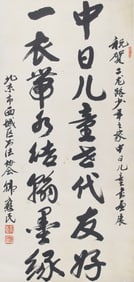 祝贺二龙路少年之家中日儿童书画展
中日儿童世代友好
一衣带水结翰墨缘
北京市西城区书法协会